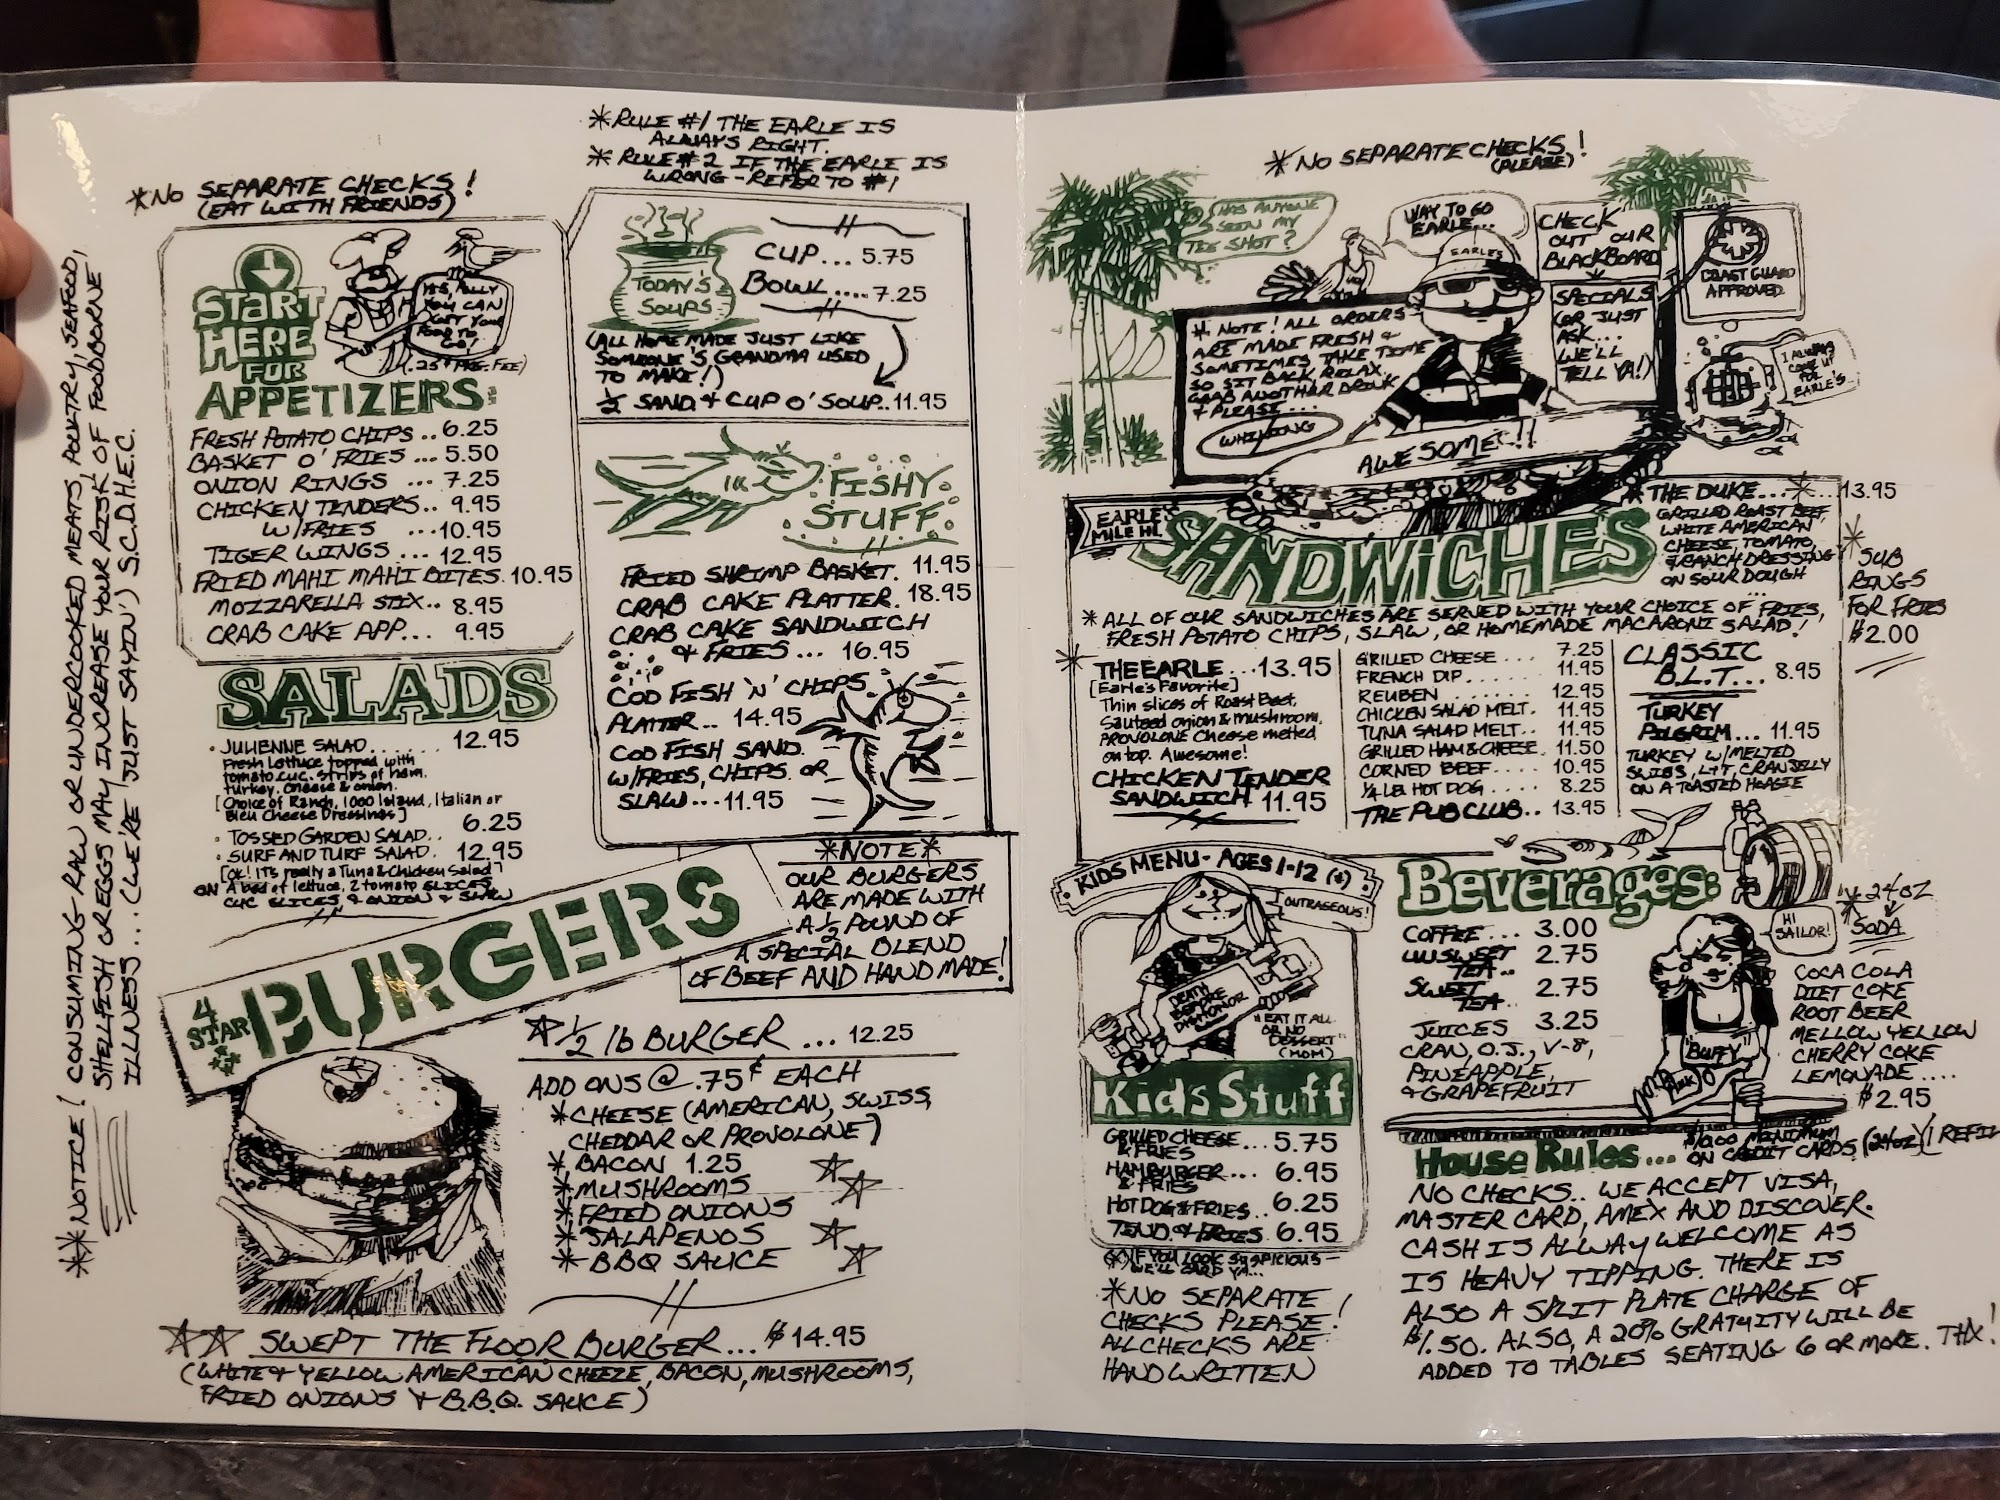 **NOTICE! CONSUMING RAW OR UNDERCOOKED MEATS, POULTRY, SEAFOOD,
SHELLFISH OR EGGS MAY INCREASE YOUR RISK OF FOODBORNE
ILLNESS... (WE'RE 'JUST SAYIN') S.C.D.H.E.C.
*NO SEPARATE CHECKS!
(EAT WITH FRIENDS)
*RULE #1 THE EARLE IS
ALWAYS RIGHT.
*RULE #2 IF THE EARLE IS
WRONG - REFER TO #1
START
HERE
FOR
APPETIZERS:
YOU CAN
FRESH POTATO CHIPS .. 6.25
BASKET O' FRIES ... 5.50
ONION RINGS ... 7.25
CHICKEN TENDERS.. 9.95
W/FRIES ... 10.95
TIGER WINGS ... 12.95
FRIED MAHI MAHI BITES. 10.95
MOZZARELLA STIX.. 8.95
CRAB CAKE APP... 9.95
TODAY'S
SOUPS
CUP... 5.75
BOWL....7.25
(ALL HOME MADE JUST LIKE
SOMEONE'S GRANDMA USED
TO MAKE!)
1/2 SAND. & CUP O' SOUP..11.95
FISHY
STUFF
FRIED SHRIMP BASKET. 11.95
CRAB CAKE PLATTER. 18.95
CRAB CAKE SANDWICH
& FRIES... 16.95
COD FISH 'N' CHIPS
PLATTER.. 14.95
COD FISH SAND.
W/FRIES, CHIPS OR
SLAW...11.95
SALADS
• JULIENNE SALAD....... 12.95
Fresh Lettuce topped with
tomato, cuc. strips of ham,
turkey, cheese & onion.
[Choice of Ranch, 1000 Island, Italian or
Bleu Cheese Dressings]
• TOSSED GARDEN SALAD.. 6.25
• SURF AND TURF SALAD. 12.95
[OK! IT'S really a Tuna & Chicken Salad]
ON A bed of lettuce, 2 tomato SLICES,
CUC SLICES & ONION & SLAW
4
STAR
BURGERS
*NOTE*
OUR BURGERS
ARE MADE WITH
A 1/2 POUND OF
A SPECIAL BLEND
OF BEEF AND HAND MADE!
1/2 lb BURGER ... 12.25
ADD ONS @ .75¢ EACH
*CHEESE (AMERICAN, SWISS,
CHEDDAR OR PROVOLONE)
*BACON 1.25
*MUSHROOMS
*FRIED ONIONS
*JALAPENOS
*BBQ SAUCE
SWEPT THE FLOOR BURGER... $14.95
(WHITE & YELLOW AMERICAN CHEEZE, BACON, MUSHROOMS,
FRIED ONIONS & B.B.Q. SAUCE)
*NO SEPARATE CHECKS!
(PLEASE)
HAS ANYONE
SEEN MY
TEE SHOT?
WAY TO GO
EARLE...
EARLE'S
CHECK
OUT OUR
BLACKBOARD
SPECIALS
(OR JUST
ASK...
WE'LL
TELL YA!)
COAST GUARD
APPROVED
I ALWAYS
COME UP
FOR
EARLE'S...
* NOTE! ALL ORDERS
ARE MADE FRESH &
SOMETIMES TAKE TIME
SO SIT BACK RELAX,
GRAB ANOTHER DRINK
& PLEASE...
WHINING
AWESOME!!
SANDWICHES
*THE DUKE...*...13.95
GRILLED ROAST BEEF,
WHITE AMERICAN
CHEESE, TOMATO,
& RANCH DRESSING
ON SOUR DOUGH
* SUB
RINGS
FOR FRIES
$2.00
*ALL OF OUR SANDWICHES ARE SERVED WITH YOUR CHOICE OF FRIES,
FRESH POTATO CHIPS, SLAW, OR HOMEMADE MACARONI SALAD!
* THE EARLE ...13.95
[Earle's Favorite]
Thin slices of Roast Beef,
Sauteed onion & mushroom,
PROVOLONE Cheese melted
on top. Awesome!
CHICKEN TENDER
SANDWICH 11.95
GRILLED CHEESE .... 7.25
FRENCH DIP....... 11.95
REUBEN ....... 12.95
CHICKEN SALAD MELT. 11.95
TUNA SALAD MELT.. 11.95
GRILLED HAM & CHEESE. 11.50
CORNED BEEF.... 10.95
1/4 LB HOT DOG.... 8.25
THE PUB CLUB.. 13.95
CLASSIC
B.L.T... 8.95
TURKEY
PILGRIM... 11.95
TURKEY W/MELTED
SWISS, L & T, CRAN JELLY
ON A TOASTED HOAGIE
KIDS MENU - AGES 1-12 (*)
OUTRAGEOUS!
DEATH
BEFORE
DISHONOR
"EAT IT ALL
OR NO
DESSERT"
(MOM)
Kids Stuff
GRILLED CHEESE
& FRIES ...5.75
HAMBURGER....
& FRIES 6.95
HOT DOG & FRIES.. 6.25
TEND. & FRIES. 6.95
(*) IF YOU LOOK SUSPICIOUS
WE'LL CARD YA...
*NO SEPARATE
CHECKS PLEASE!
ALL CHECKS ARE
HAND WRITTEN
Beverages:
COFFEE... 3.00
UNSWEET
TEA.. 2.75
SWEET
TEA.. 2.75
JUICES 3.25
CRAN, O.J., V-8,
PINEAPPLE,
& GRAPEFRUIT
HI
SAILOR!
"BUFFY"
24 OZ
SODA
COCA COLA
DIET COKE
ROOT BEER
MELLOW YELLOW
CHERRY COKE
LEMONADE....
$2.95
(24oz) (1 REFIL
House Rules...
MINIMUM
ON CREDIT CARDS
NO CHECKS.. WE ACCEPT VISA,
MASTER CARD, AMEX AND DISCOVER.
CASH IS ALLWAY WELCOME AS
IS HEAVY TIPPING. THERE IS
ALSO A SPLIT PLATE CHARGE OF
$1.50. ALSO, A 20% GRATUITY WILL BE
ADDED TO TABLES SEATING 6 OR MORE. THX!